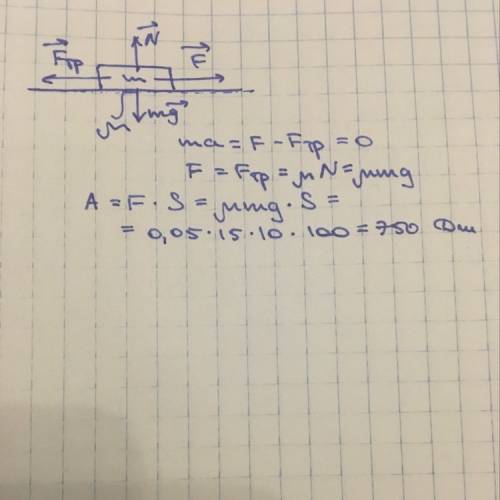 N
Fтр m F
μ mg
ma = F - Fтр = 0
F = Fтр = μN = μmg
A = F · S = μmg · S =
= 0,05 · 15 · 10 · 100 = 750 Дж